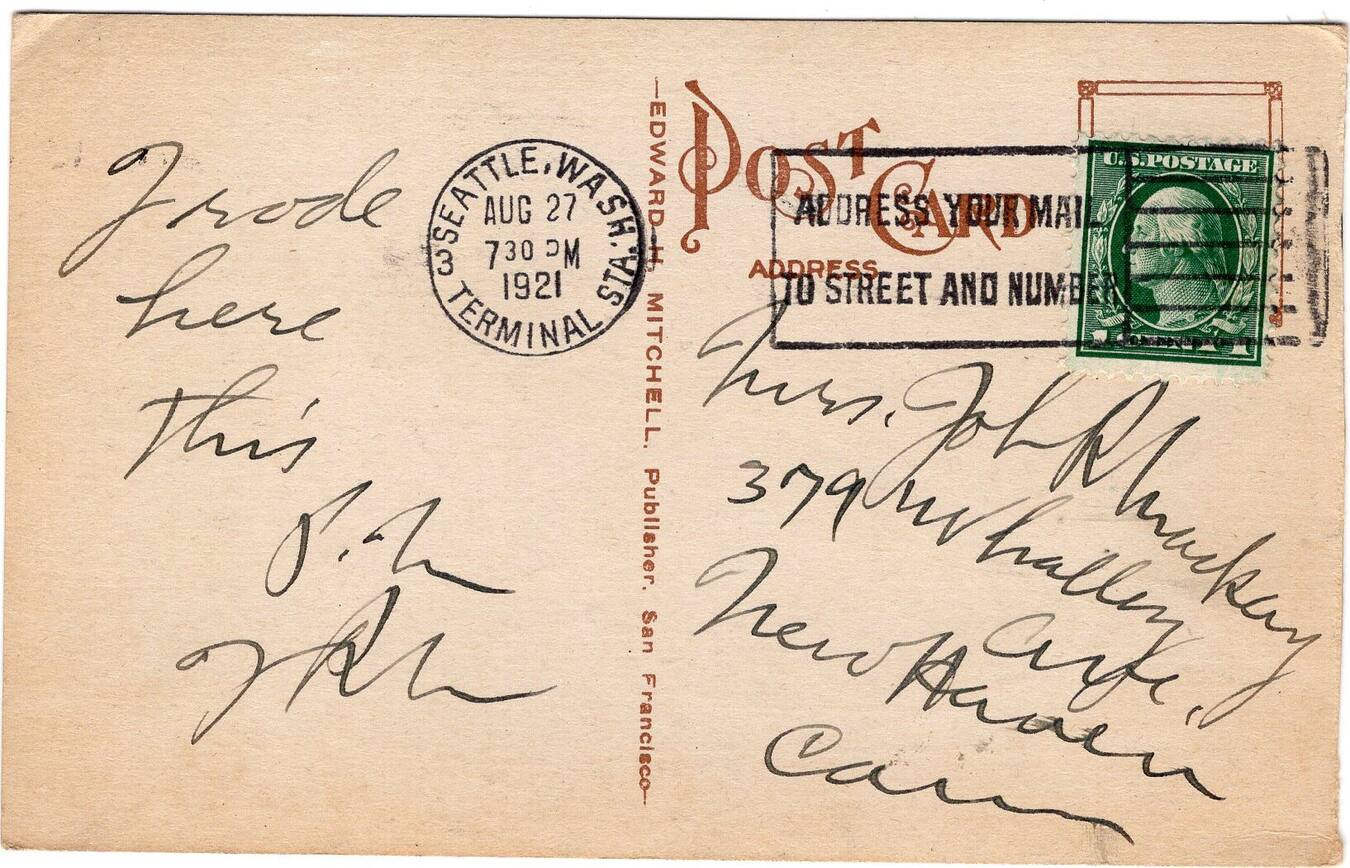 I rode
here
this
P.M.
JRM
SEATTLE, WASH.
AUG 27
730 PM
1921
3 TERMINAL STA.
—EDWARD H. MITCHELL. Publisher. San Francisco—
POST CARD
ADDRESS
ADDRESS YOUR MAIL
TO STREET AND NUMBER
U.S. POSTAGE
1 1
Mrs. John R
379 Whalley
Ave,
New Haven
Conn